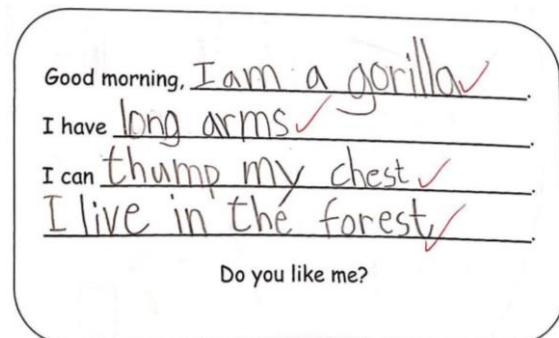 Good morning, I am a gorilla.
I have long arms.
I can thump my chest.
I live in the forest.
Do you like me?